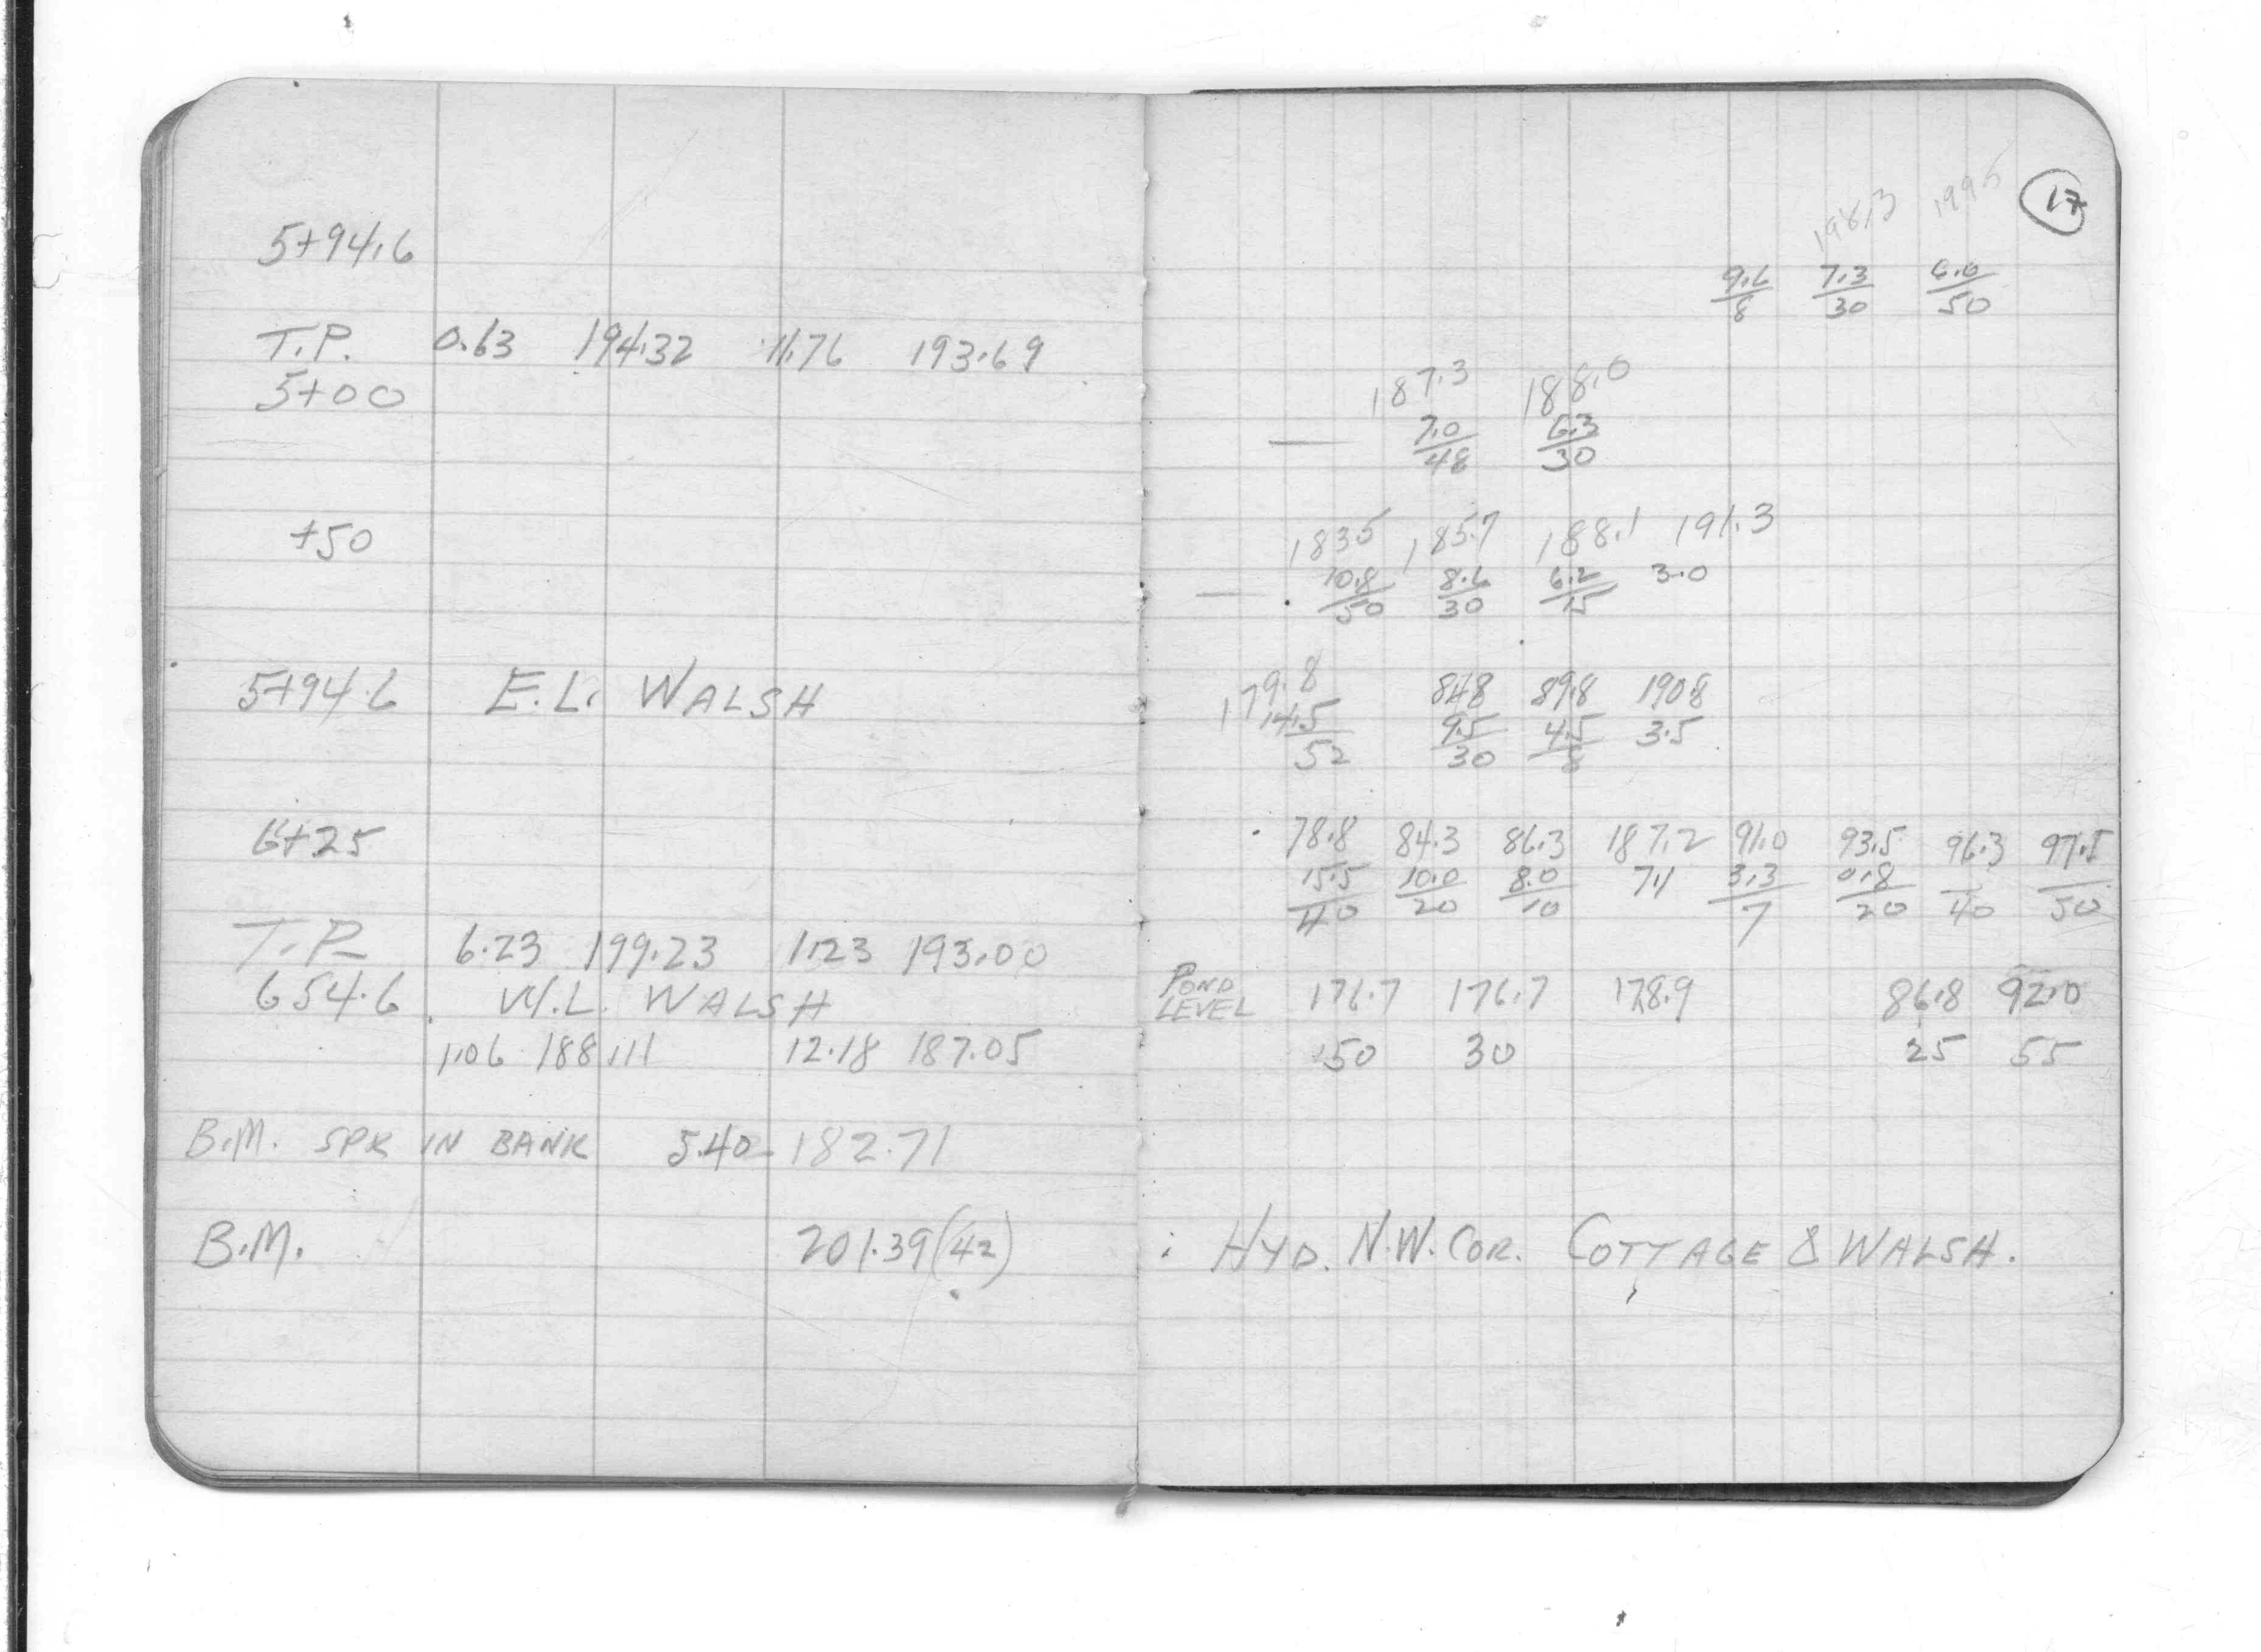 17
5+94.6
198.3 199.5
9.6/8 7.3/30 6.0/50
T.P. 0.63 194.32 11.76 193.69
5+00
187.3 188.0
7.0/48 6.3/30
+50
183.5 185.7 188.1 191.3
10.8/50 8.6/30 6.2/15 3.0
5+94.6 E.L. WALSH
179.8 84.8 89.8 190.8
14.5/52 9.5/30 4.5/8 3.5
6+25
78.8 84.3 86.3 187.2 91.0 93.5 96.3 97.5
15.5/40 10.0/20 8.0/10 7.1 3.3/7 0.8/20 /40 /50
T.P. 6.23 199.23 1.23 193.00
654.6 W.L. WALSH
POND LEVEL 176.7 176.7 178.9 86.8 92.0
1.06 188.11 12.18 187.05
50 30 25 55
B.M. SPK IN BANK 5.40 182.71
B.M. 201.39(42)
HYD. N.W. COR. COTTAGE & WALSH.